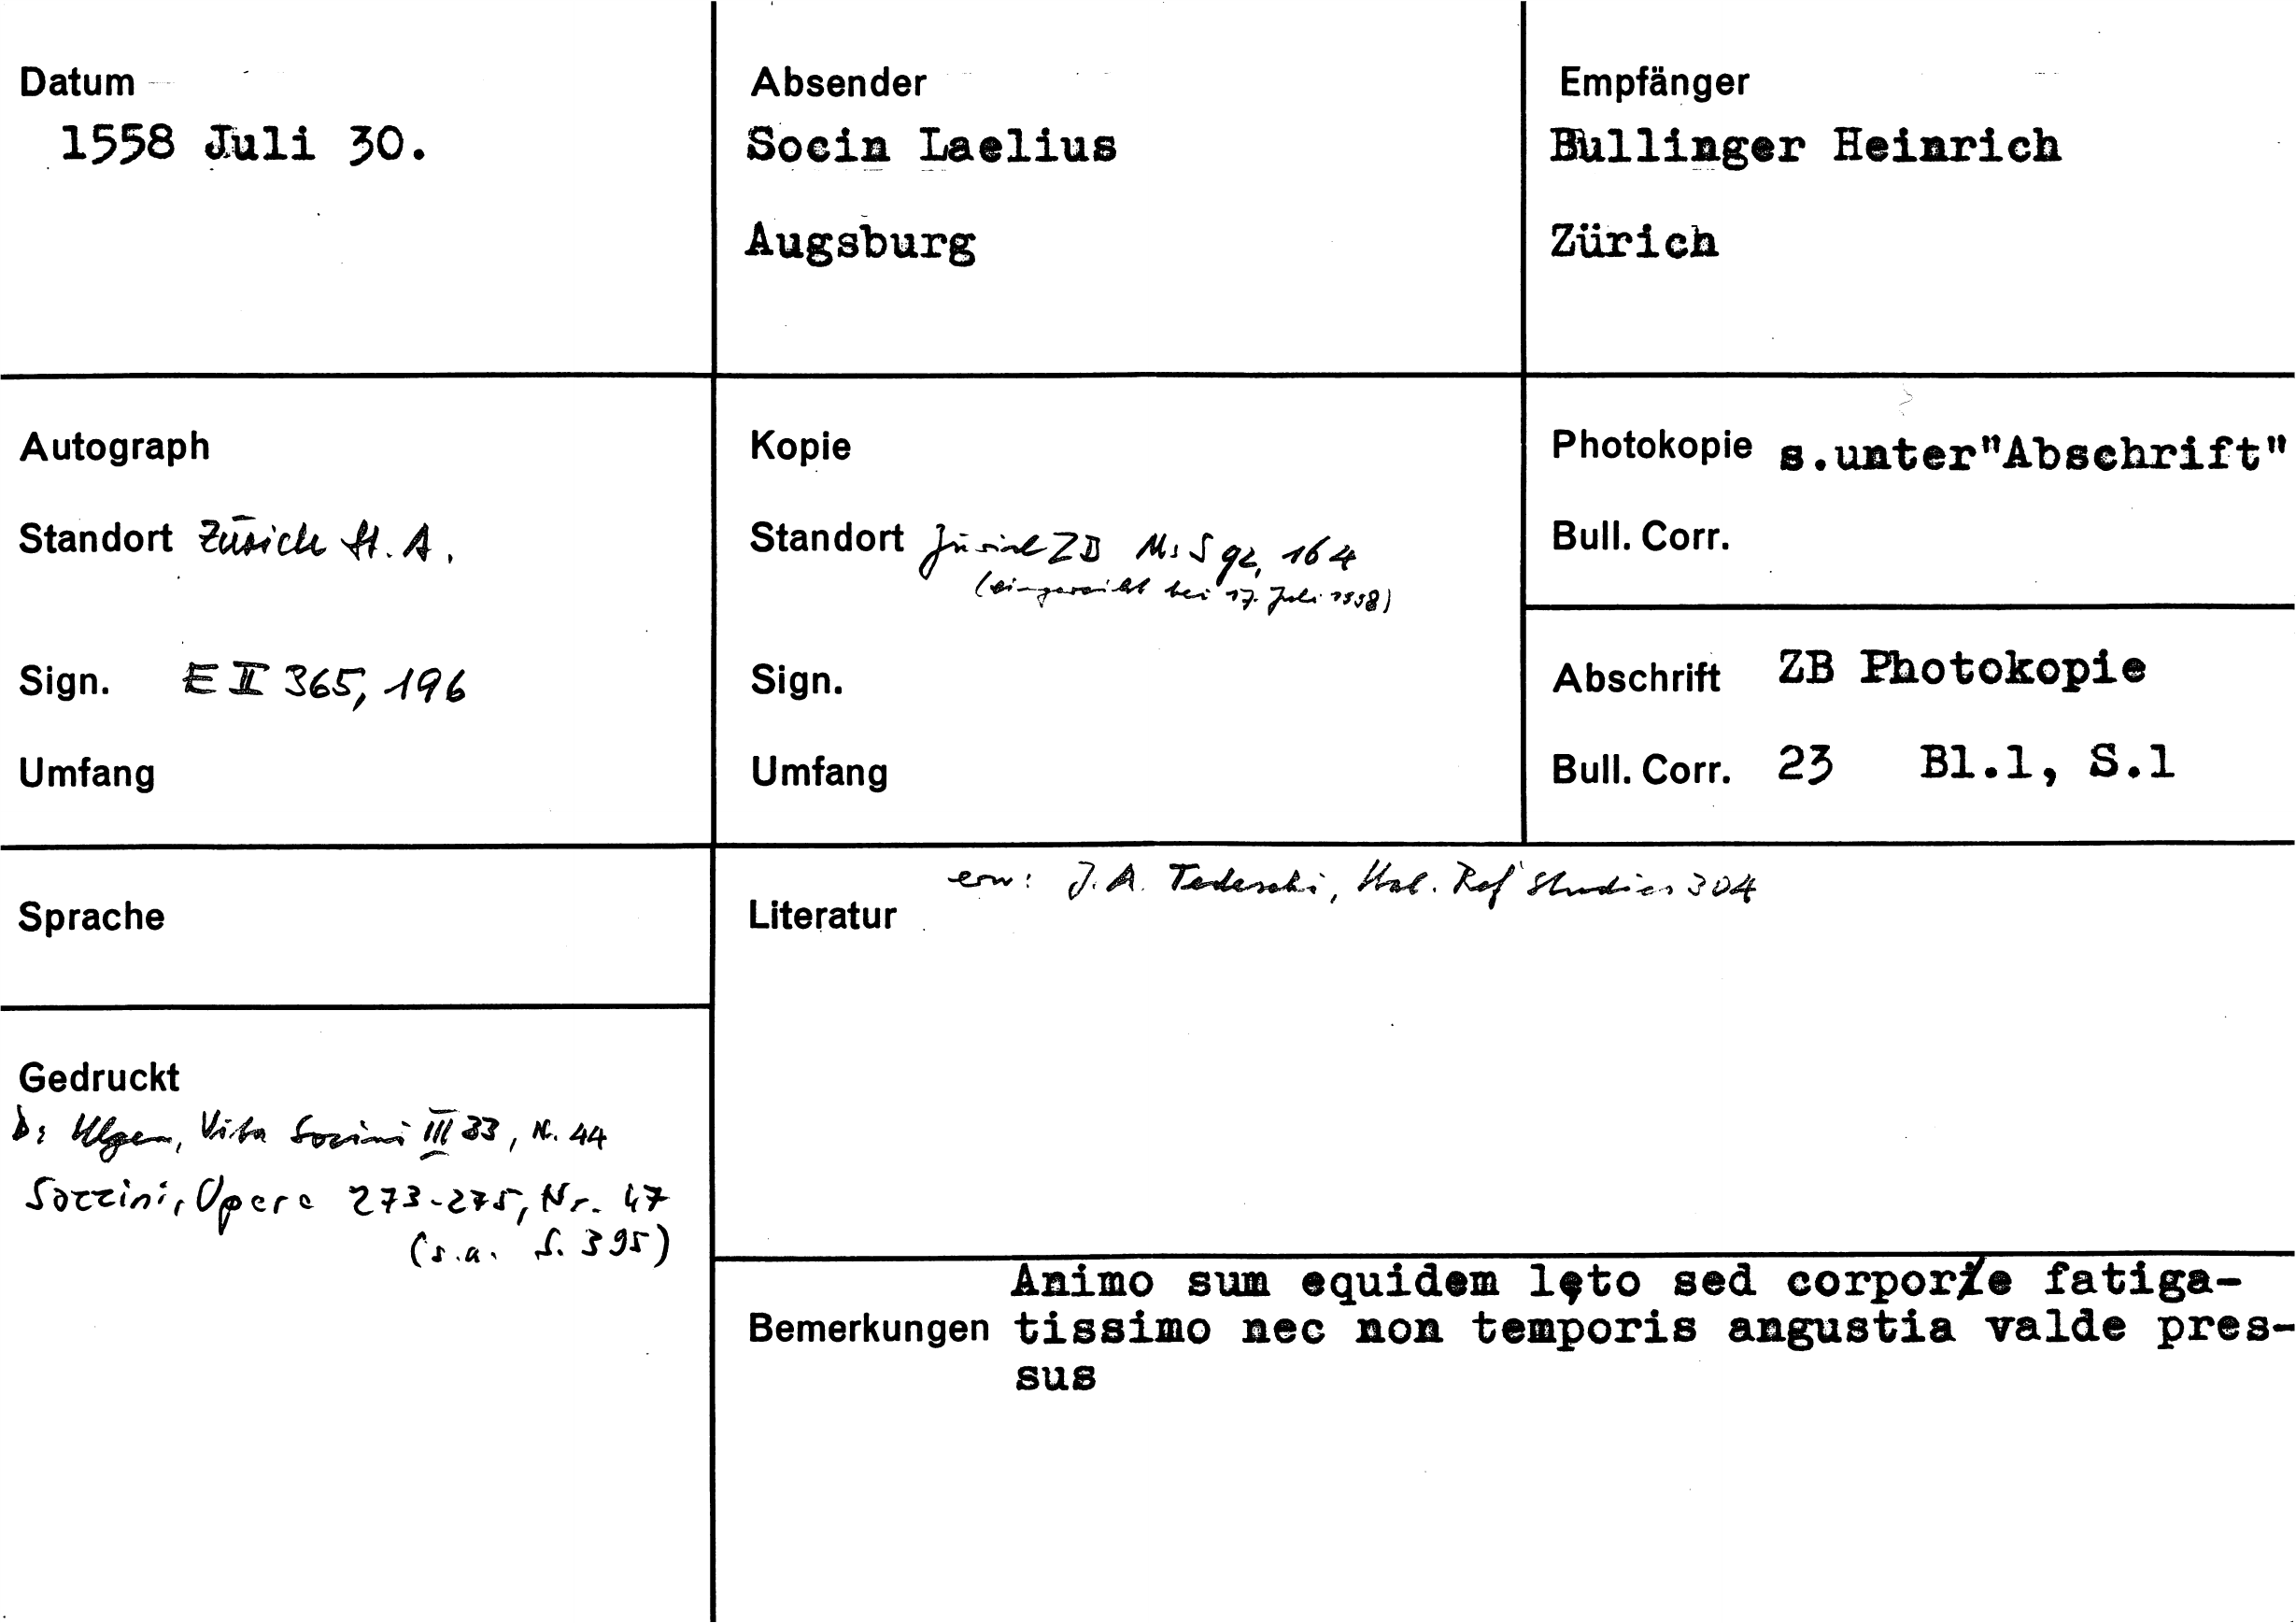 Datum
1558 Juli 30.
Absender
Socin Laelius
Augsburg
Empfänger
Bullinger Heinrich
Zürich
Autograph
Standort Zürich St. A.
Sign. E II 365, 196
Umfang
Kopie
Standort Zürich ZB Ms S 92, 164
(eingereiht bei 17. Juli 1558)
Sign.
Umfang
Photokopie s.unter"Abschrift"
Bull. Corr.
Abschrift ZB Photokopie
Bull. Corr. 23 Bl.1, S.1
Sprache
Literatur erw: J. A. Tedeschi, Ital. Ref Studies 304
Gedruckt
D: Illgen, Vita Socini III 33, N. 44
Sozzini, Opere 273-275, Nr. 47
(s.a. S. 395)
Bemerkungen
Animo sum equidem lęto sed corpore fatiga-
tissimo nec non temporis angustia valde pres-
sus